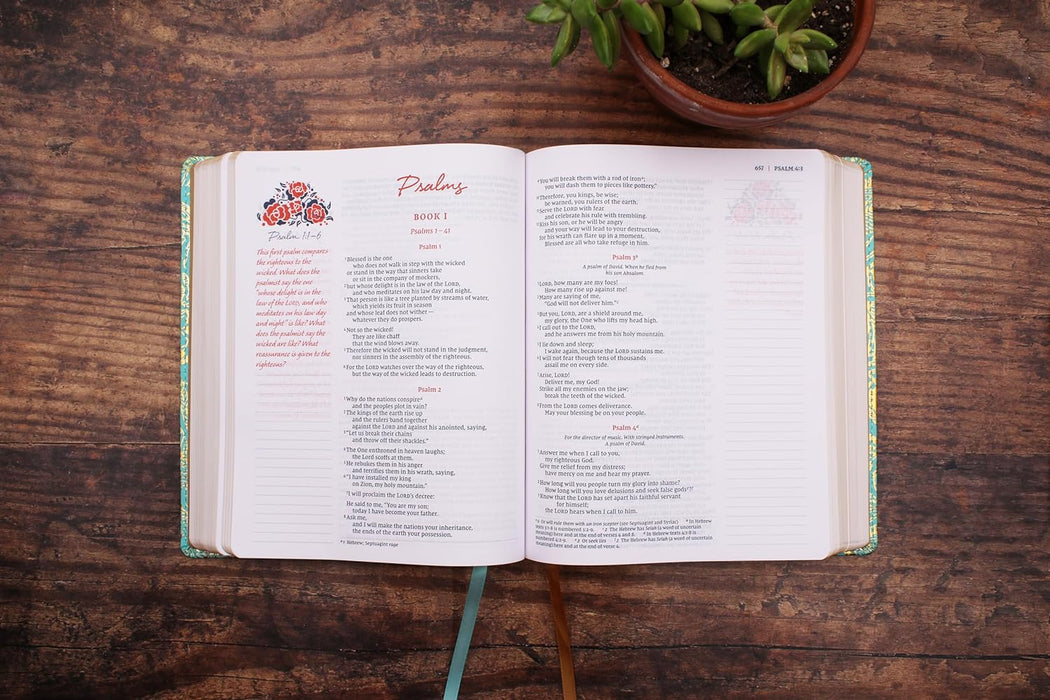 Psalm 1:1–6
This first psalm compares
the righteous to the
wicked. What does the
psalmist say the one
"whose delight is in the
law of the LORD, and who
meditates on his law day
and night" is like? What
does the psalmist say the
wicked are like? What
reassurance is given to the
righteous?
Psalms
BOOK I
Psalms 1–41
Psalm 1
1 Blessed is the one
who does not walk in step with the wicked
or stand in the way that sinners take
or sit in the company of mockers,
2 but whose delight is in the law of the LORD,
and who meditates on his law day and night.
3 That person is like a tree planted by streams of water,
which yields its fruit in season
and whose leaf does not wither—
whatever they do prospers.
4 Not so the wicked!
They are like chaff
that the wind blows away.
5 Therefore the wicked will not stand in the judgment,
nor sinners in the assembly of the righteous.
6 For the LORD watches over the way of the righteous,
but the way of the wicked leads to destruction.
Psalm 2
1 Why do the nations conspire a
and the peoples plot in vain?
2 The kings of the earth rise up
and the rulers band together
against the LORD and against his anointed, saying,
3 "Let us break their chains
and throw off their shackles."
4 The One enthroned in heaven laughs;
the Lord scoffs at them.
5 He rebukes them in his anger
and terrifies them in his wrath, saying,
6 "I have installed my king
on Zion, my holy mountain."
7 I will proclaim the LORD's decree:
He said to me, "You are my son;
today I have become your father.
8 Ask me,
and I will make the nations your inheritance,
the ends of the earth your possession.
a 1 Hebrew; Septuagint rage
657 | PSALM 4:3
9 You will break them with a rod of iron a;
you will dash them to pieces like pottery."
10 Therefore, you kings, be wise;
be warned, you rulers of the earth.
11 Serve the LORD with fear
and celebrate his rule with trembling.
12 Kiss his son, or he will be angry
and your way will lead to your destruction,
for his wrath can flare up in a moment.
Blessed are all who take refuge in him.
Psalm 3 b
A psalm of David. When he fled from
his son Absalom.
1 LORD, how many are my foes!
How many rise up against me!
2 Many are saying of me,
"God will not deliver him." c
3 But you, LORD, are a shield around me,
my glory, the One who lifts my head high.
4 I call out to the LORD,
and he answers me from his holy mountain.
5 I lie down and sleep;
I wake again, because the LORD sustains me.
6 I will not fear though tens of thousands
assail me on every side.
7 Arise, LORD!
Deliver me, my God!
Strike all my enemies on the jaw;
break the teeth of the wicked.
8 From the LORD comes deliverance.
May your blessing be on your people.
Psalm 4 d
For the director of music. With stringed instruments.
A psalm of David.
1 Answer me when I call to you,
my righteous God.
Give me relief from my distress;
have mercy on me and hear my prayer.
2 How long will you people turn my glory into shame?
How long will you love delusions and seek false gods e? f
3 Know that the LORD has set apart his faithful servant
for himself;
the LORD hears when I call to him.
a 9 Or will rule them with an iron scepter (see Septuagint and Syriac) b In Hebrew
texts 3:1-8 is numbered 3:2-9. c 2 The Hebrew has Selah (a word of uncertain
meaning) here and at the end of verses 4 and 8. d In Hebrew texts 4:1-8 is
numbered 4:2-9. e 2 Or seek lies f 2 The Hebrew has Selah (a word of uncertain
meaning) here and at the end of verse 4.